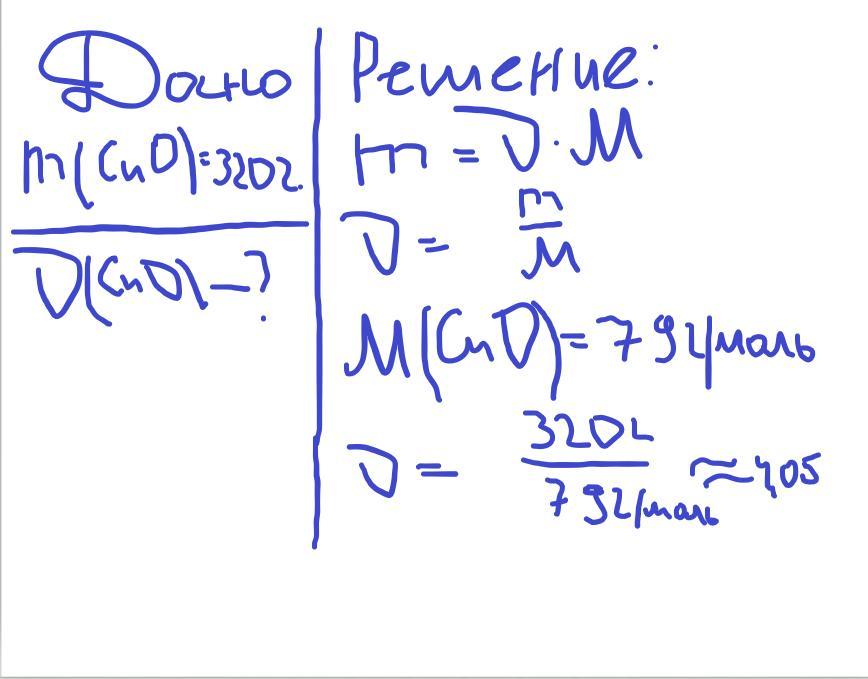 Дано
m(CuO)=320г.
ν(CuO)-?
Решение:
m = ν · M
ν = m/M
M(CuO)=79г/моль
ν = 320г/79г/моль ≈4,05